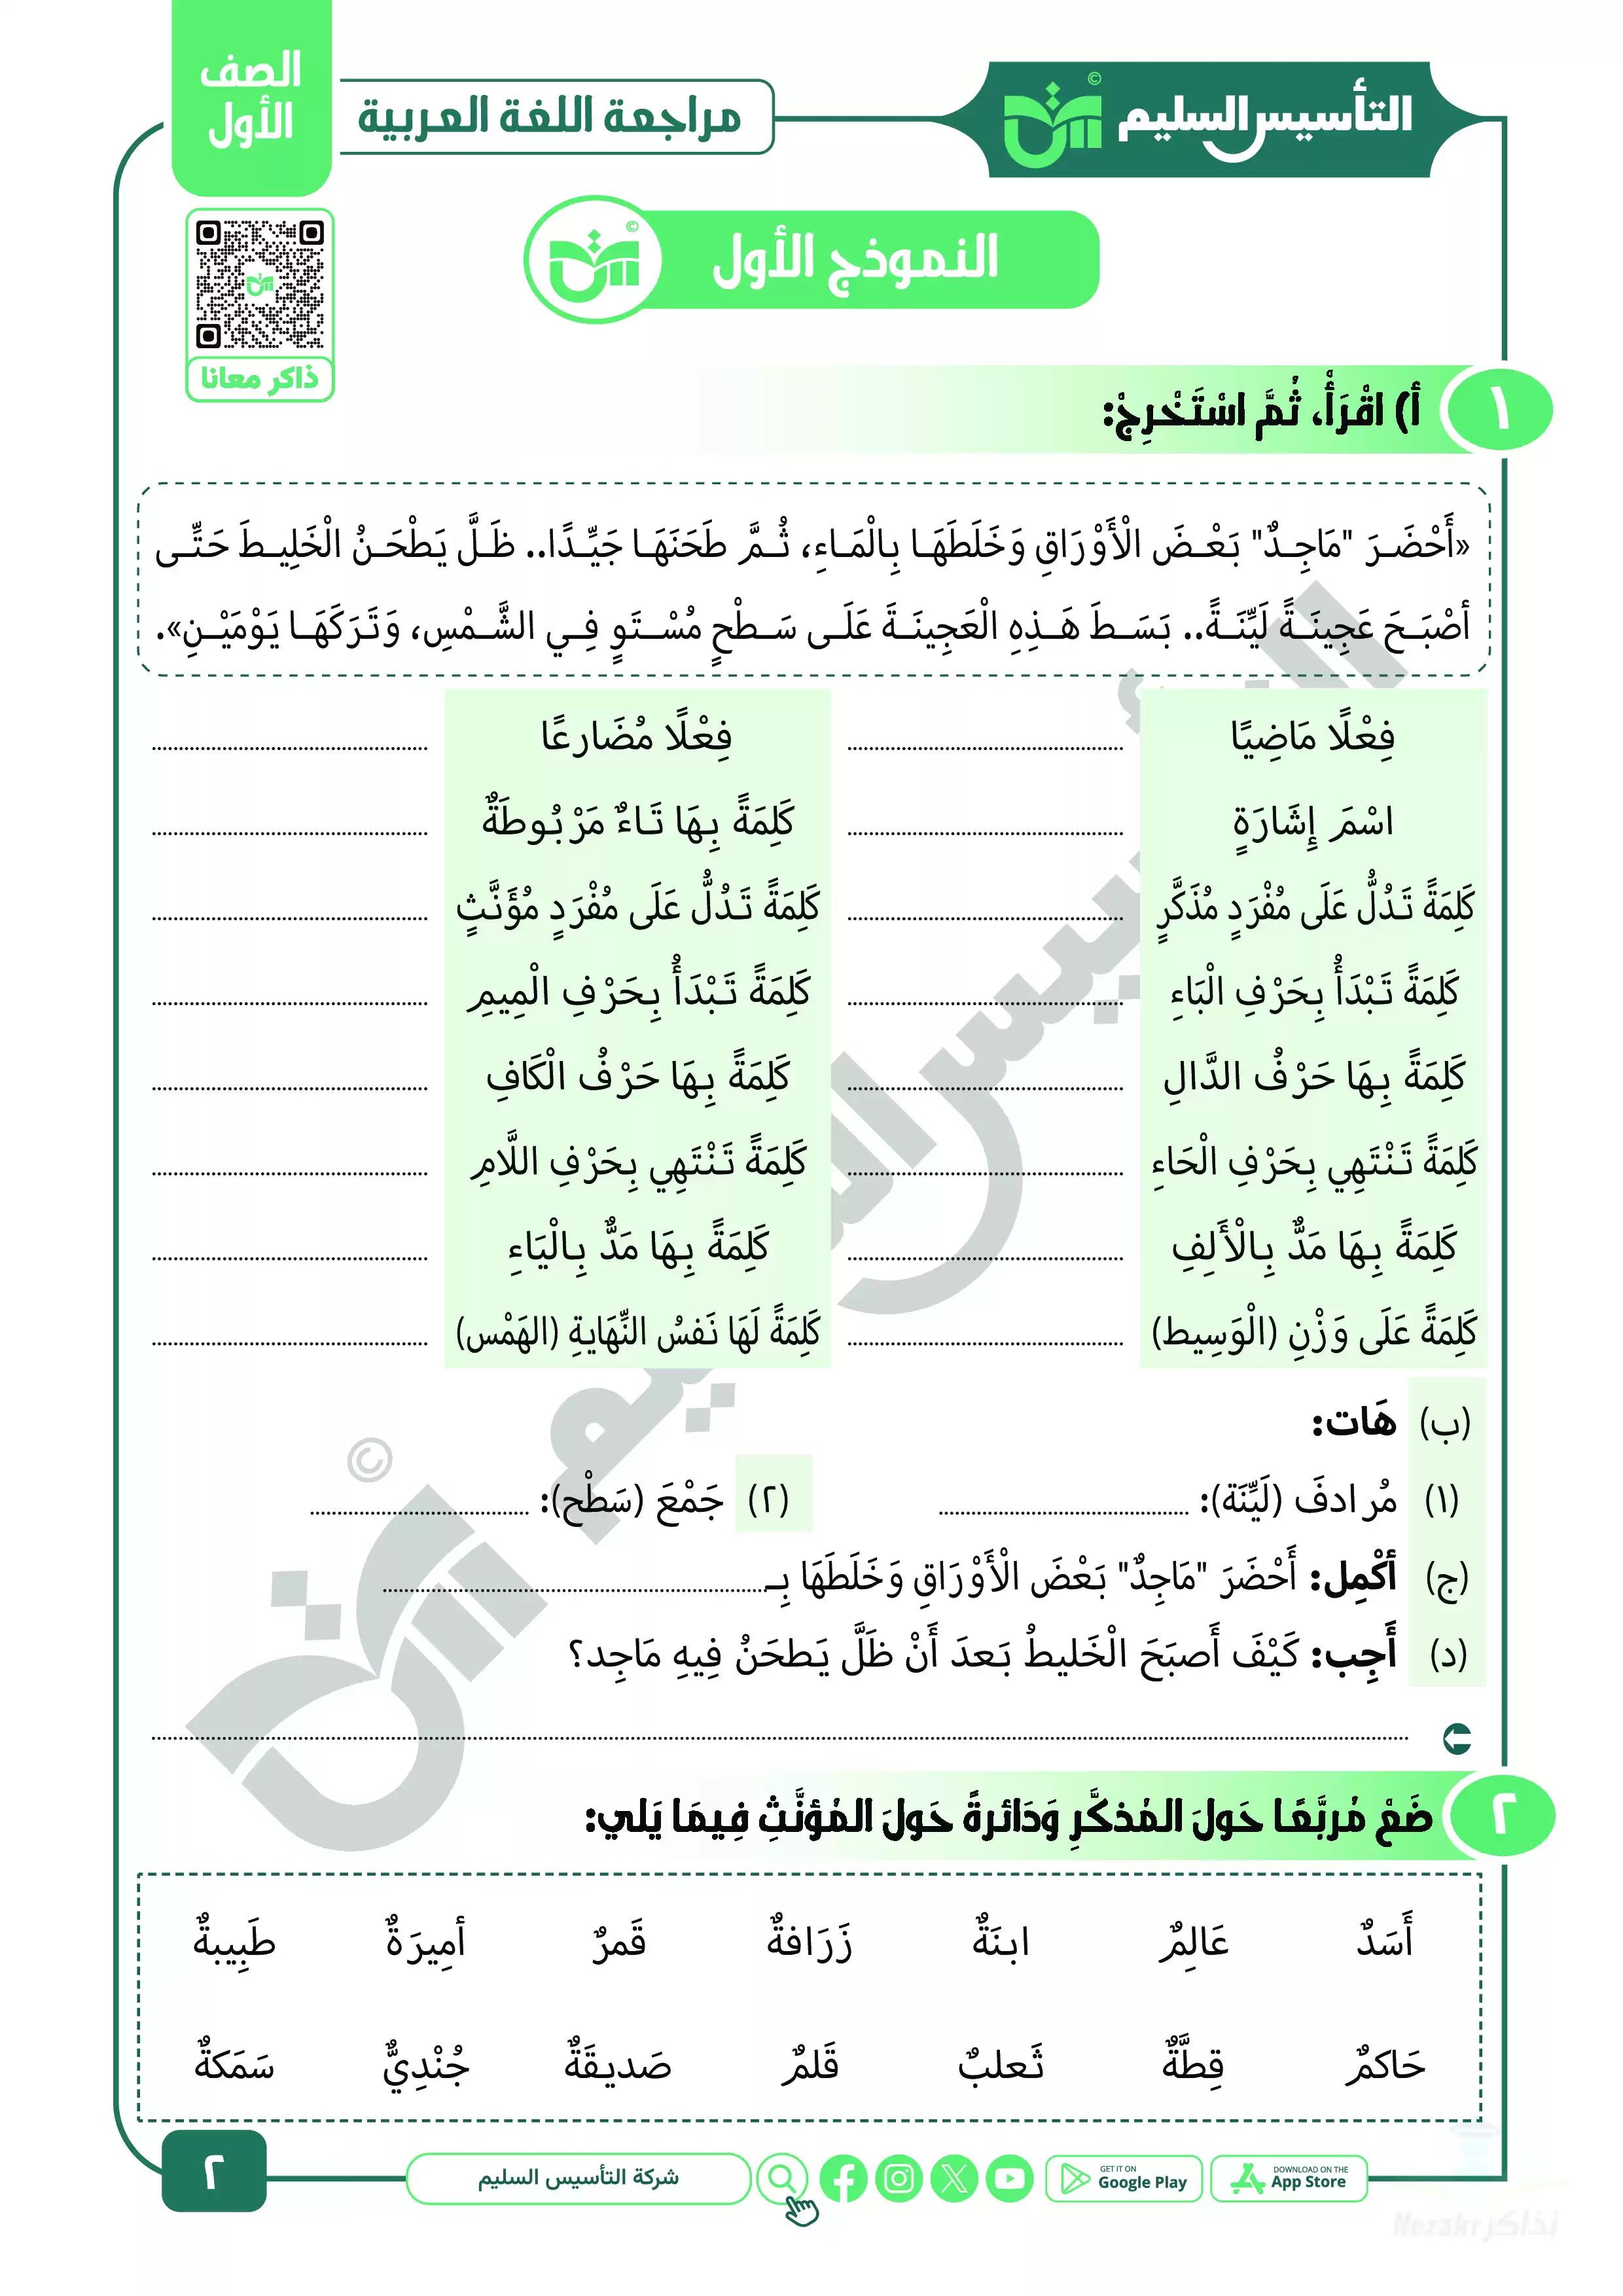 الصف
الأول
مراجعة اللغة العربية
التأسيس السليم
النموذج الأول
ذاكر معانا
١
أ) اقْرَأْ، ثُمَّ اسْتَخْرِجْ:
«أَحْضَرَ "مَاجِدٌ" بَعْضَ الْأَوْرَاقِ وَخَلَطَهَا بِالْمَاءِ، ثُمَّ طَحَنَهَا جَيِّدًا.. ظَلَّ يَطْحَنُ الْخَلِيطَ حَتَّى
أصْبَحَ عَجِينَةً لَيِّنَةً.. بَسَطَ هَذِهِ الْعَجِينَةَ عَلَى سَطْحٍ مُسْتَوٍ فِي الشَّمْسِ، وَتَرَكَهَا يَوْمَيْنِ».
فِعْلًا مَاضِيًا ........ فِعْلًا مُضَارعًا ........
اسْمَ إِشَارَةٍ ........ كَلِمَةً بِهَا تَاءٌ مَرْبُوطَةٌ ........
كَلِمَةً تَدُلُّ عَلَى مُفْرَدٍ مُذَكَّرٍ ........ كَلِمَةً تَدُلُّ عَلَى مُفْرَدٍ مُؤَنَّثٍ ........
كَلِمَةً تَبْدَأُ بِحَرْفِ الْبَاءِ ........ كَلِمَةً تَبْدَأُ بِحَرْفِ الْمِيمِ ........
كَلِمَةً بِهَا حَرْفُ الدَّالِ ........ كَلِمَةً بِهَا حَرْفُ الْكَافِ ........
كَلِمَةً تَنْتَهِي بِحَرْفِ الْحَاءِ ........ كَلِمَةً تَنْتَهِي بِحَرْفِ اللَّامِ ........
كَلِمَةً بِهَا مَدٌّ بِالْأَلِفِ ........ كَلِمَةً بِهَا مَدٌّ بِالْيَاءِ ........
كَلِمَةً عَلَى وَزْنِ (الْوَسِيط) ........ كَلِمَةً لَهَا نَفسُ النِّهَايةِ (الهَمْس) ........
(ب) هَات:
(١) مُرادفَ (لَيِّنَة): ........ (٢) جَمْعَ (سَطْح): ........
(ج) أكْمِل: أَحْضَرَ "مَاجِدٌ" بَعْضَ الْأَوْرَاقِ وَخَلَطَهَا بِـ........
(د) أَجِب: كَيْفَ أَصبَحَ الْخَليطُ بَعدَ أَنْ ظَلَّ يَطحَنُ فِيهِ مَاجِد؟
........
٢
ضَعْ مُربَّعًا حَولَ المُذكَّرِ وَدَائرةً حَولَ المُؤنَّثِ فِيمَا يَلي:
أَسَدٌ عَالِمٌ ابنَةٌ زَرَافةٌ قَمرٌ أمِيرَةٌ طَبِيبةٌ
حَاكمٌ قِطَّةٌ ثَعلبٌ قَلمٌ صَديقَةٌ جُنْدِيٌّ سَمَكةٌ
٢
شركة التأسيس السليم
GET IT ON
Google Play
DOWNLOAD ON THE
App Store
Nezakr نذاكر